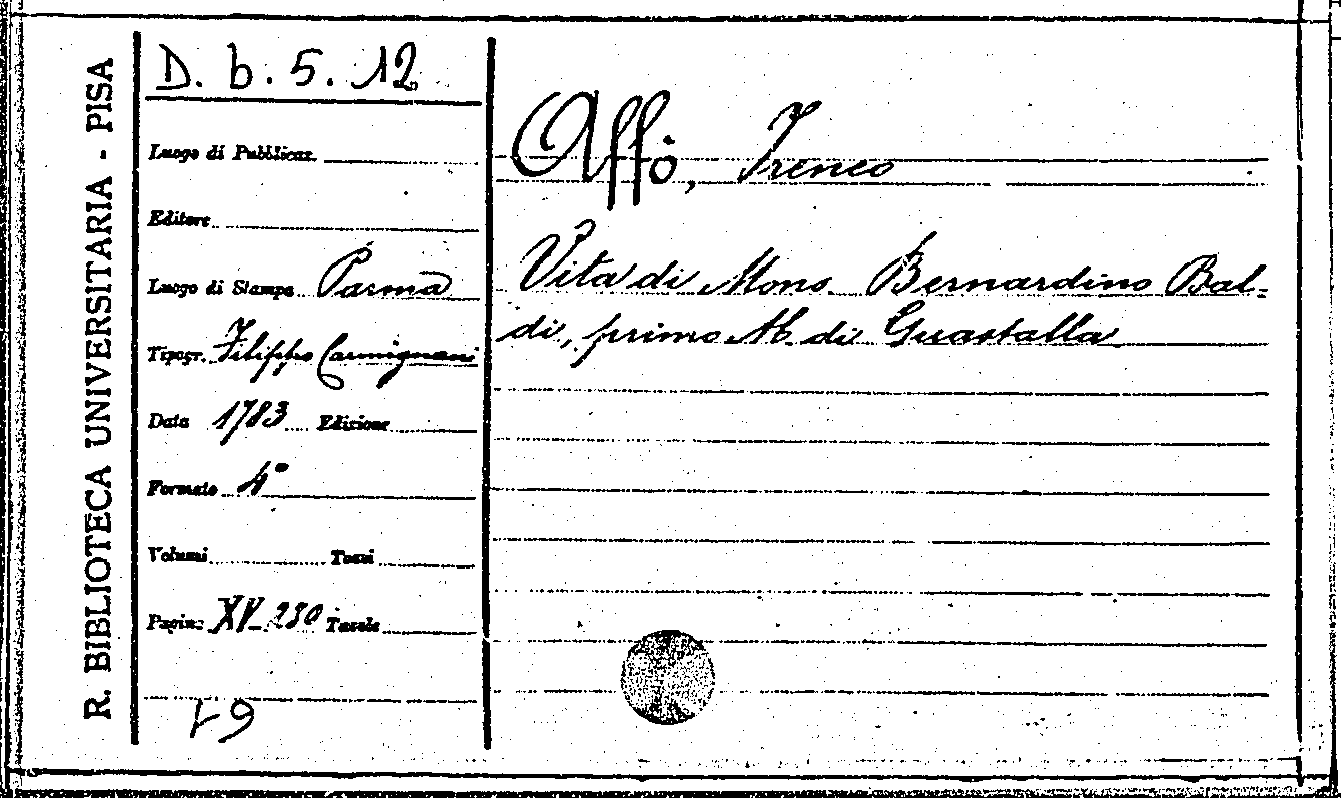 R. BIBLIOTECA UNIVERSITARIA - PISA
D. b. 5. 12
Luogo di Pubblicaz.
Editore
Luogo di Stampa Parma
Tipogr. Filippo Carmignani
Data 1783 Edizione
Formato 4°
Volumi Tomi
Pagine XV-230 Tavole
Affò, Ireneo
Vita di Mons. Bernardino Bal-
di, primo Ab. di Guastalla